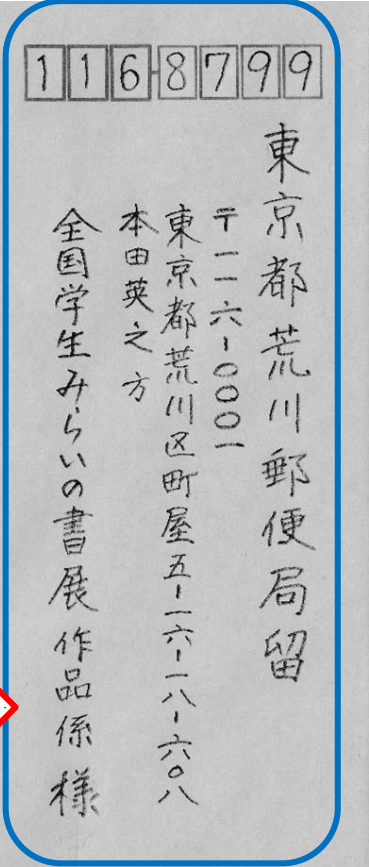 116-8799
東京都荒川郵便局留
〒一一六-〇〇〇一
東京都荒川区町屋五-一六-一八-六〇八
本田英之方
全国学生みらいの書展作品係様